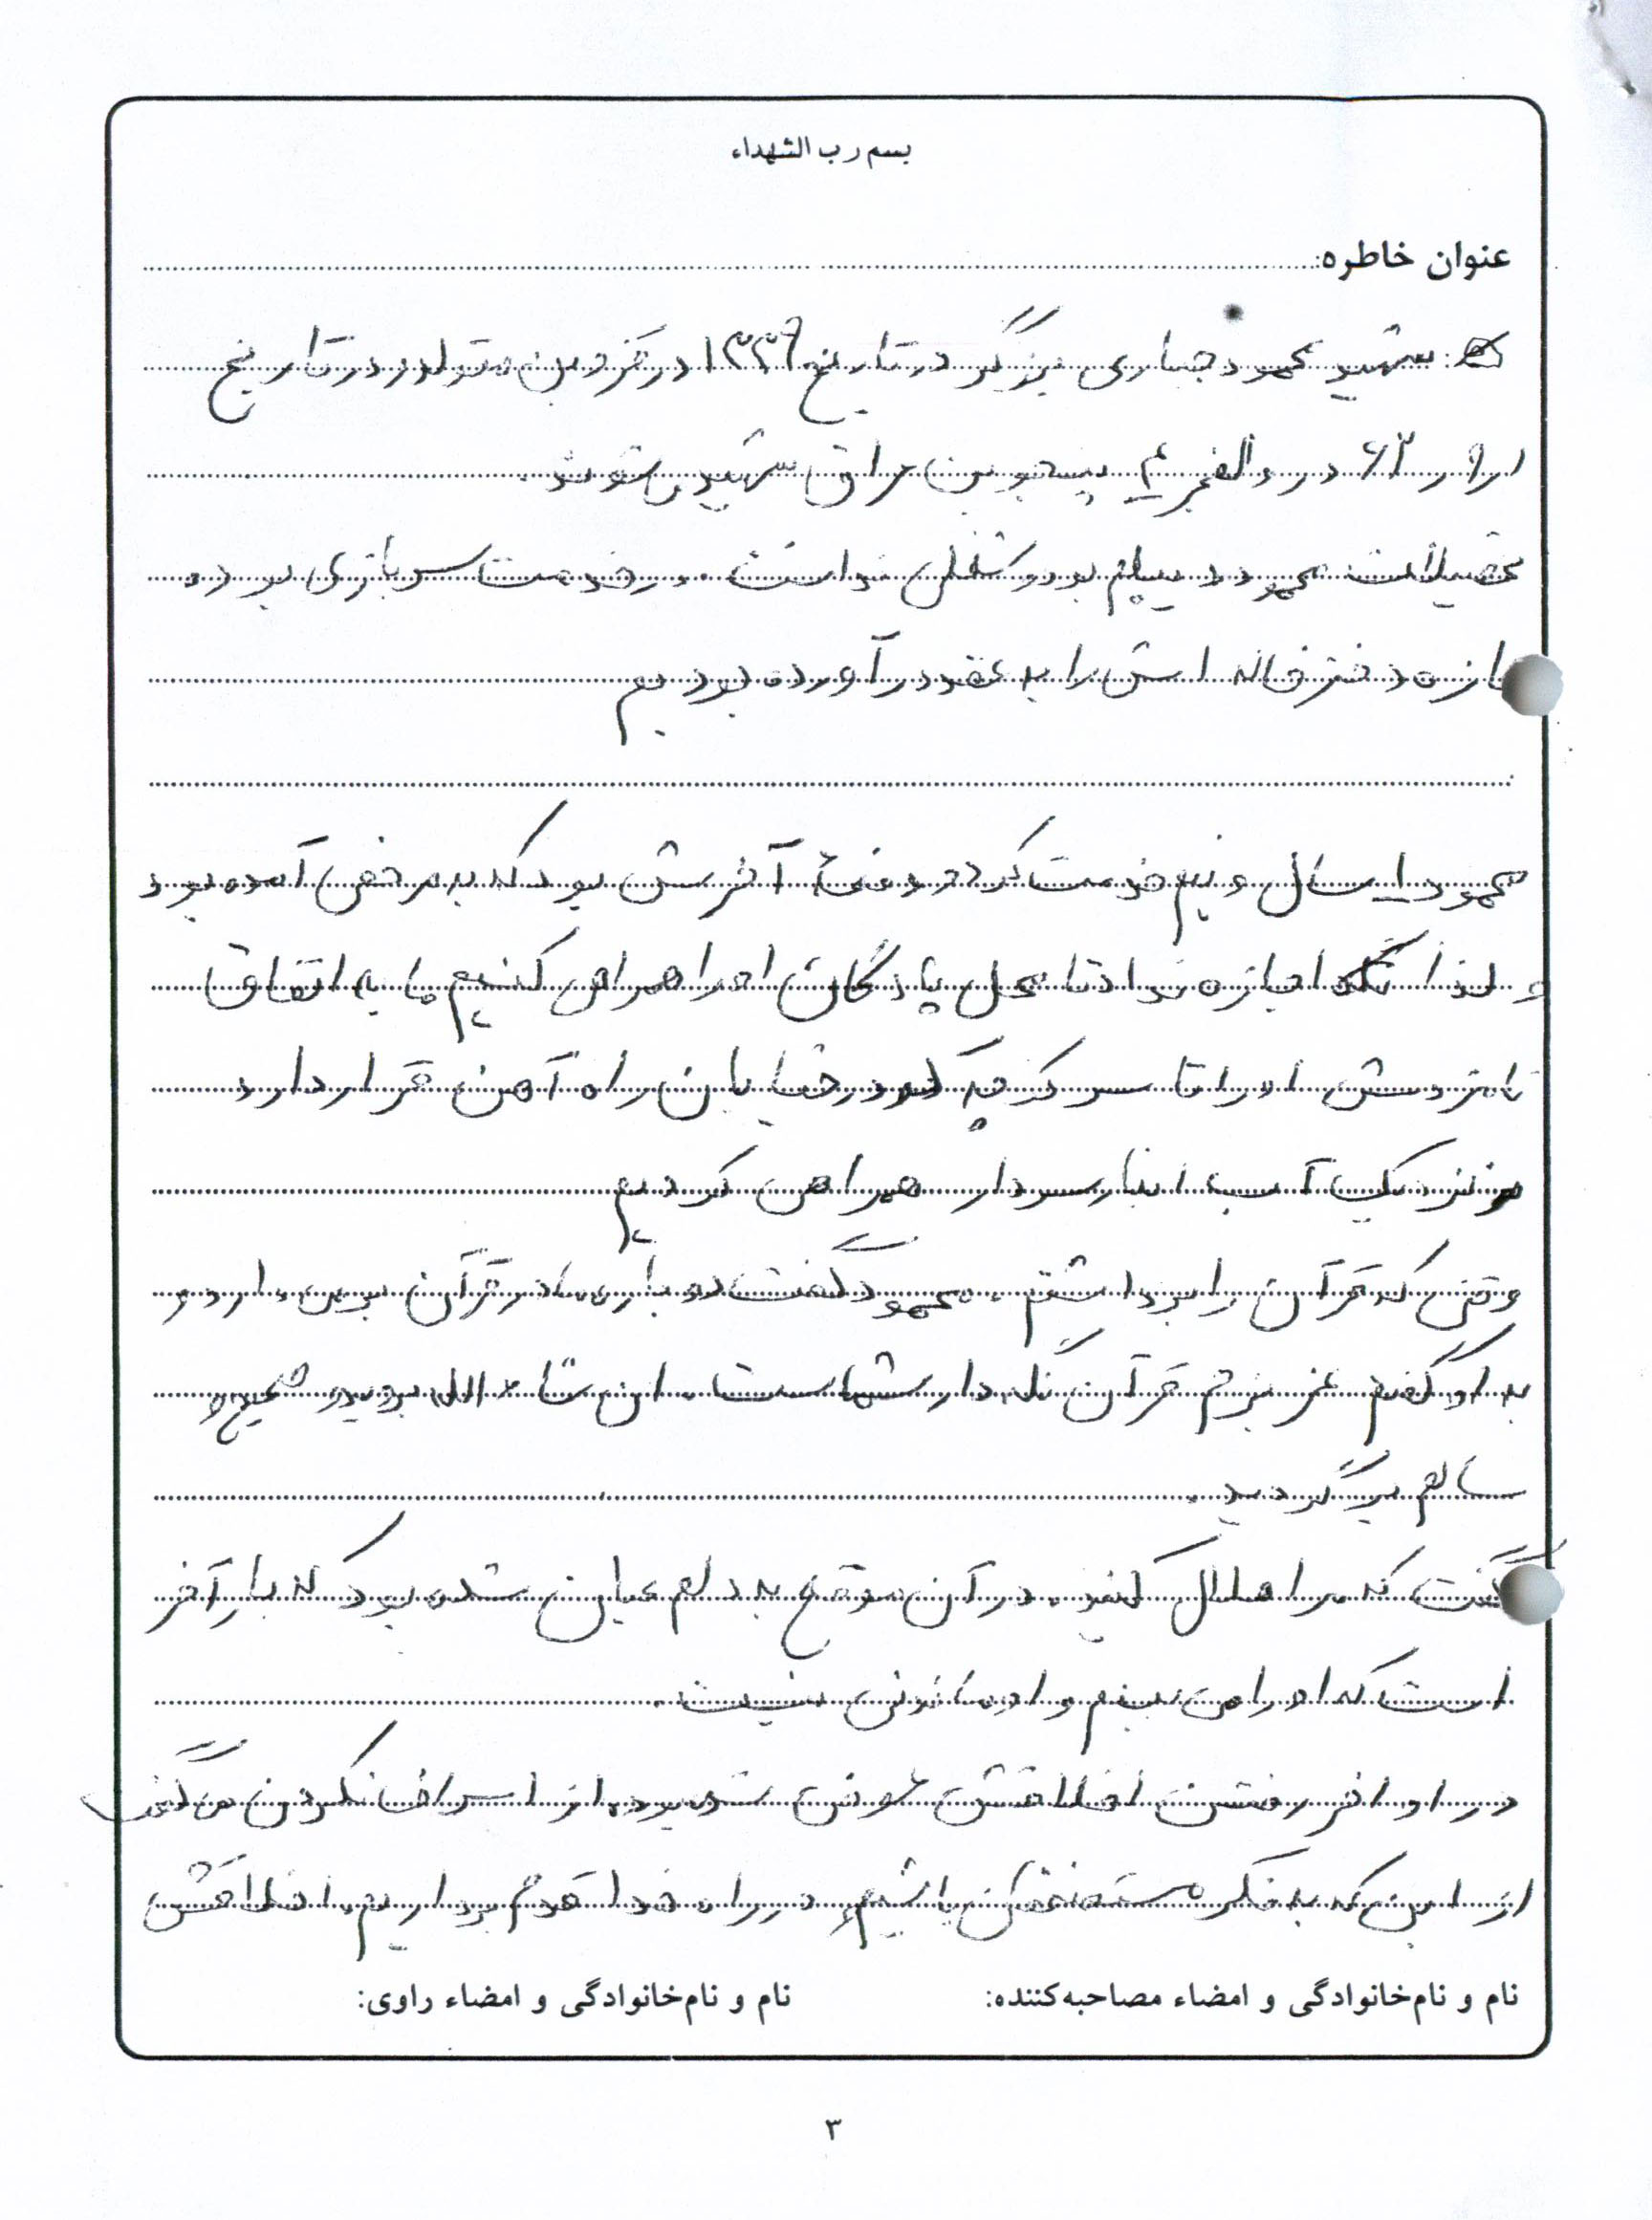 بسم رب الشهداء
عنوان خاطره:
شهید محمود جباری برزگر در تاریخ ۱۳۳۹ در قزوین متولد و در تاریخ
۱ر۹ر۶۲ در والفجر ۴ پنجوین عراق شهید می شوند.
تحصیلات محمود دیپلم بود و شغلی نداشت. در خدمت سربازی بوده
تازه دختر خاله اش را به عقد در آورده بودیم
محمود ۱ سال و نیم خدمت کرد و دفعهٔ آخرش بود که به مرخصی آمده بود
و لذا اجازه نداد تا محل پادگان او را همراهی کنیم ما به اتفاق
نامزدش او را تا سر کوچه که در خیابان راه آهن قرار دارد
و نزدیک آب انبار سردار همراهی کردیم
وقتی که قرآن را برداشتم، محمود گفت دوباره مادر قرآن برمی دارد و
به او گفتم عزیزم قرآن نگه دار شماست. ان شاء الله بروید و صحیح و
سالم برگردید.
گفت که مرا حلال کنید. در آن موقع به دلم عیان شده بود که بار آخر
است که او را می بینم و او ماندنی نیست.
در اواخر رفتن اخلاقش عوض شده بود. از اسراف نکردن می گفت
از این که به فکر مستضعفان باشیم و در راه خدا قدم برداریم. اخلاقش
نام و نام‌خانوادگی و امضاء مصاحبه‌کننده: نام و نام‌خانوادگی و امضاء راوی:
۳